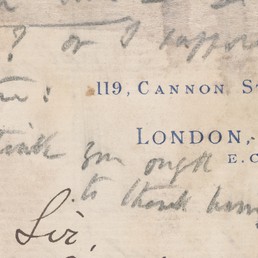 ? or I suppose
119, CANNON S
LONDON,
think you ought
E.C
to thank him
Sir,